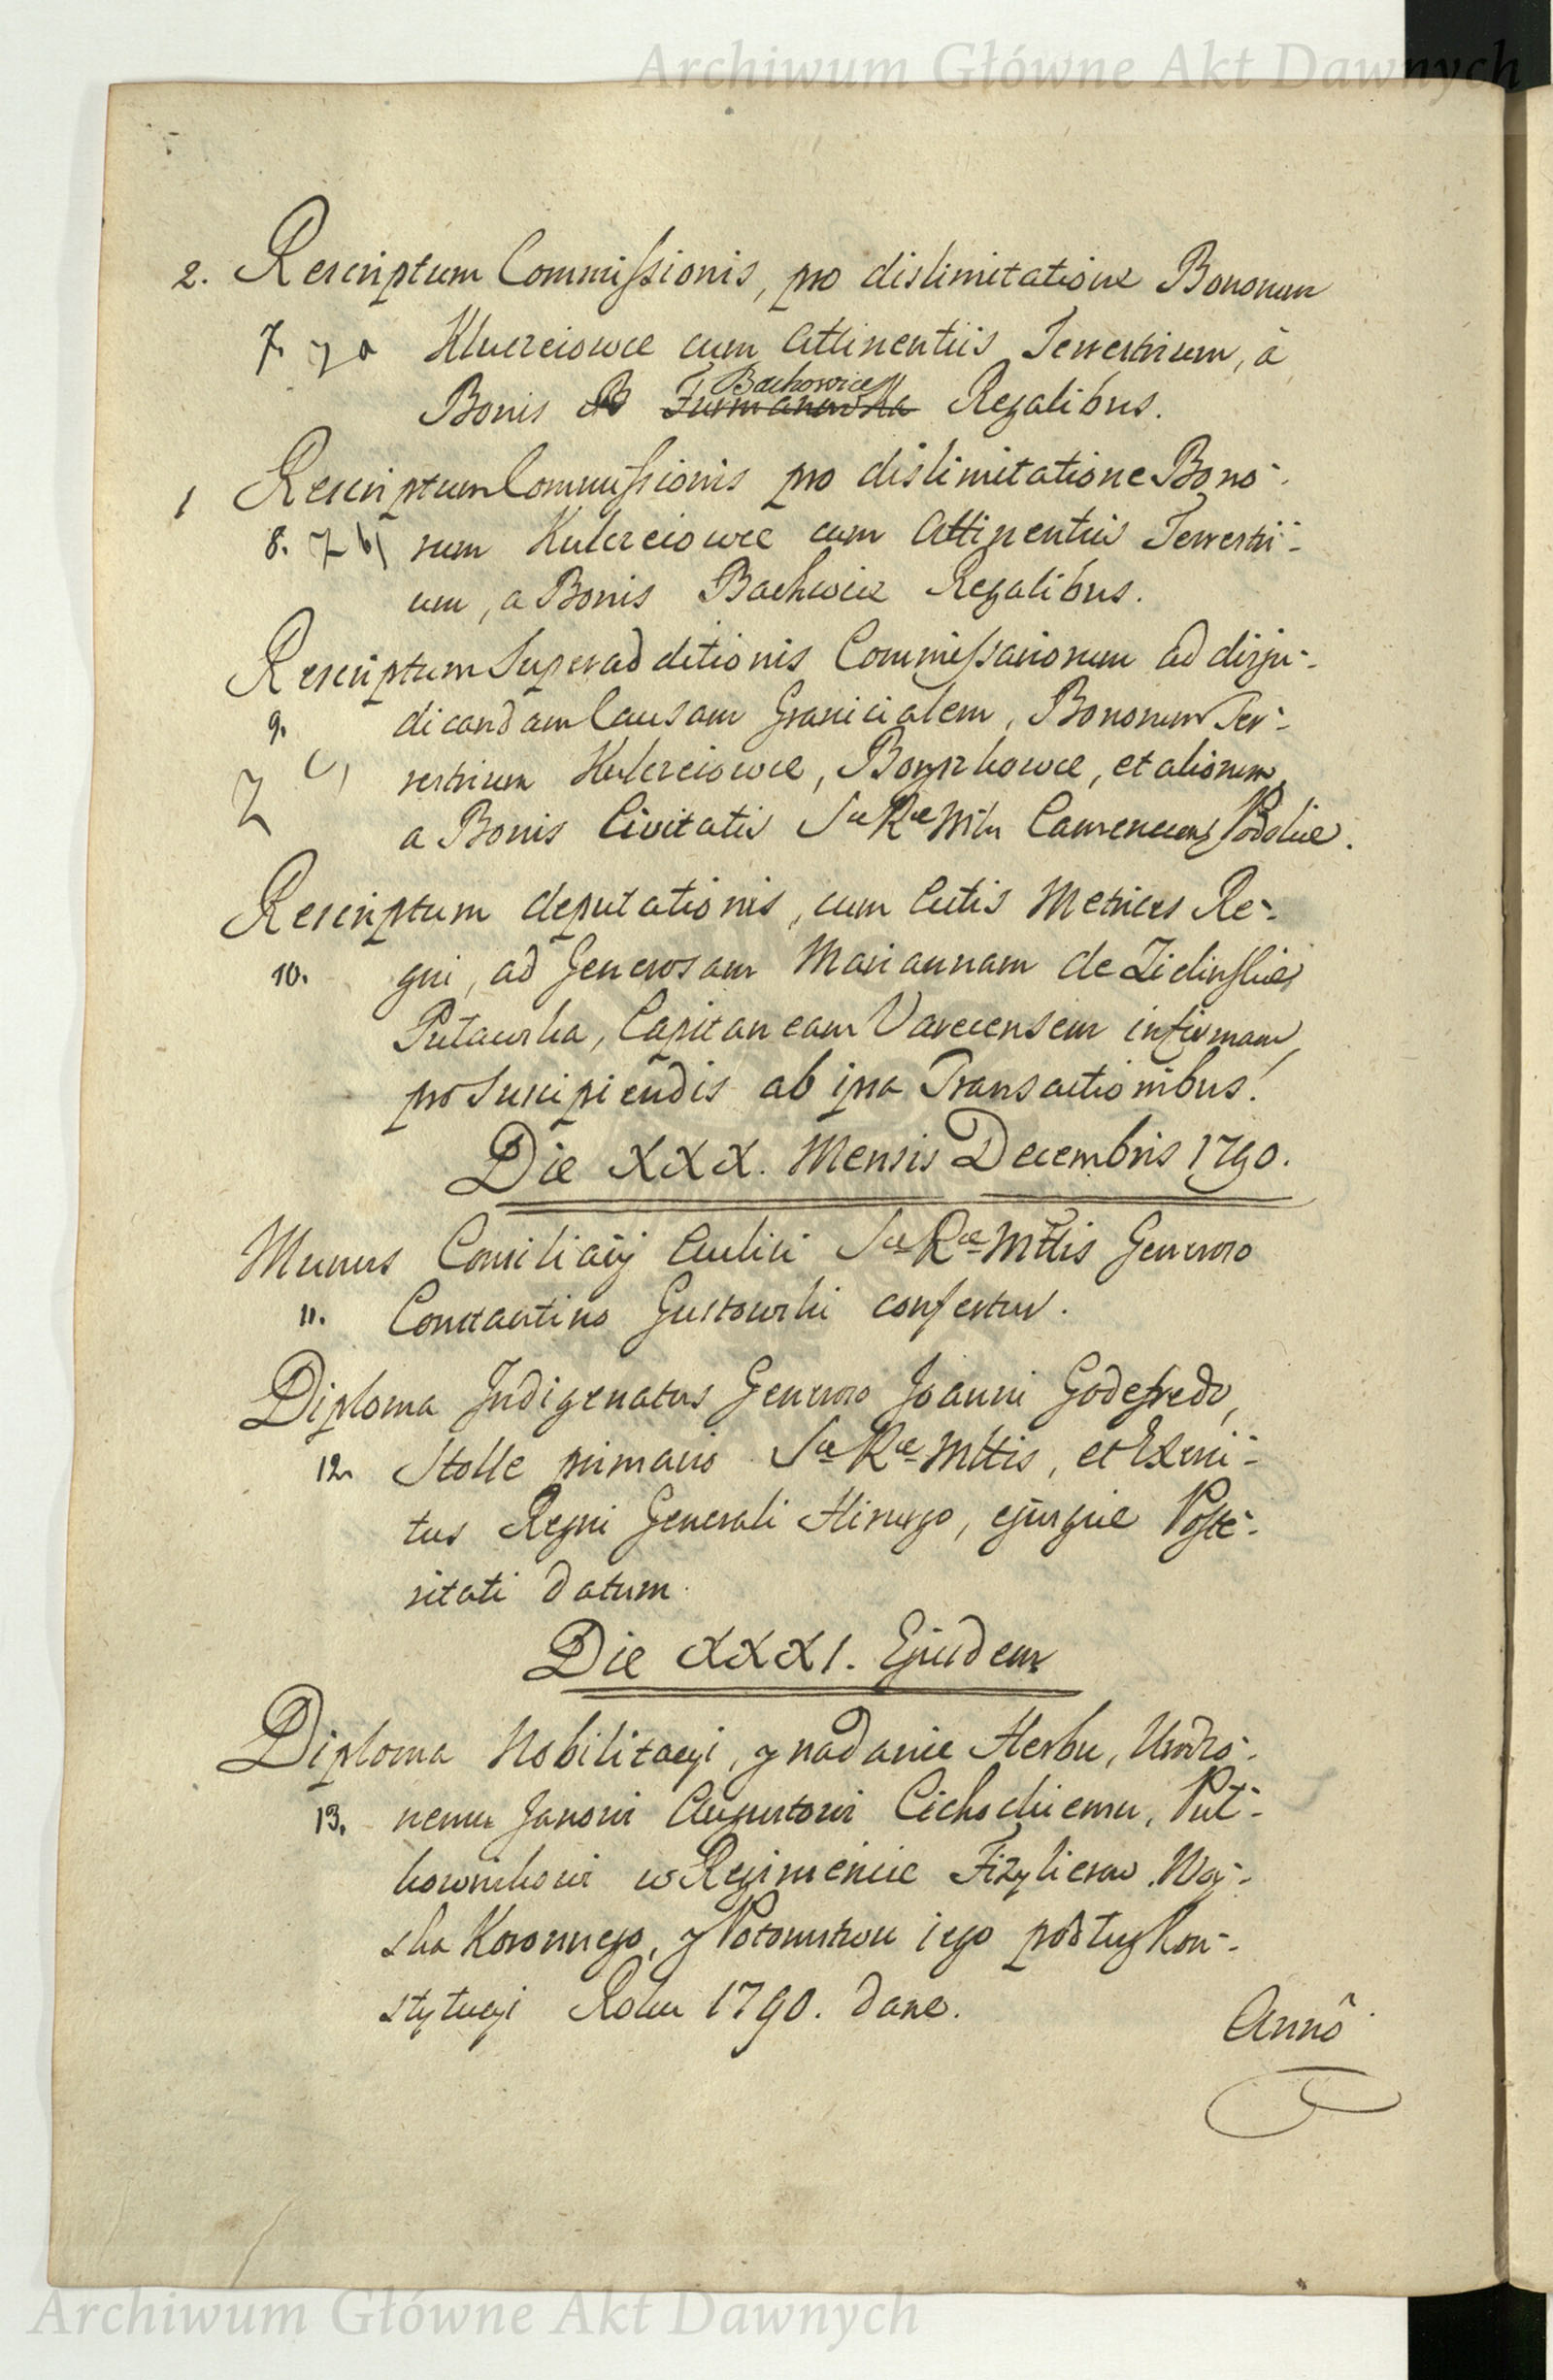 Archiwum Główne Akt Dawnych
2. Rescriptum Commissionis, pro dislimitatione Bonorum
7. 7 a Kluczeiowce cum Attinentiis Terrestrium, à
Bachowice
Bonis B Furmanowka Regalibus.
1 Rescriptum Commissionis pro dislimitatione Bono-
8. 7 b) rum Kulczeiowce cum Attinentiis Terrestri-
um, a Bonis Bachwice Regalibus.
Rescriptum Superadditionis Commissariorum ad disju-
9. dicandam Causam Granicialem, Bonorum Ter-
7 c) restrium Kulczeiowce, Boryszkowce, et aliorum,
a Bonis Civitatis Sae Rae Mtis Camenecens Podoliae.
Rescriptum deputationis, cum Actis Metrices Re-
10. gni, ad Generosam Mariannam de Zielinskie
Putawska, Capitaneam Varecensem infirmam,
pro Suscipiendis ab ipsa Transactionibus.
Die XXX. Mensis Decembris 1790.
Munus Consiliarij Aulici Sae Rae Mttis Generoso
11. Constantino Gustowski confertur.
Diploma Indigenatus Generoso Joanni Godefredo,
12. Stolle primario Sae Rae Mttis, et Exerci-
tus Regni Generali Hirurgo, ejusque Poste-
ritati datum.
Die XXXI. Ejusdem
Diploma Nobilitacyi, y nadanie Herbu, Urodzo-
13. nemu Janowi Augustowi Cichockiemu, Puł-
kownikowi w Regimencie Fizylierow Woy-
ska Koronnego, y Potomstwu iego podług Kon-
stytucyi Roku 1790. dane.
Annô
Archiwum Główne Akt Dawnych